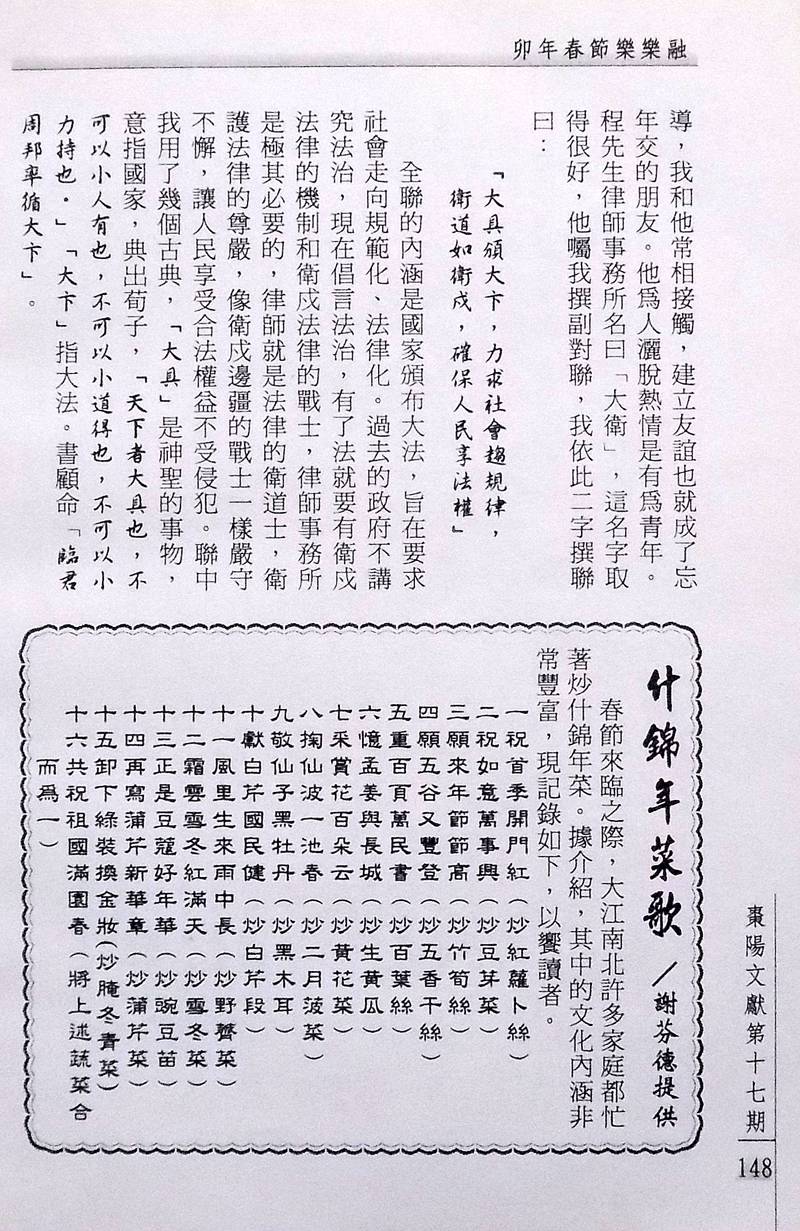 卯年春節樂樂融
導，我和他常相接觸，建立友誼也就成了忘
年交的朋友。他爲人灑脫熱情是有爲青年。
程先生律師事務所名曰「大衛」，這名字取
得很好，他囑我撰副對聯，我依此二字撰聯
曰：
「大具頒大卞，力求社會趨規律，
衛道如衛戍，確保人民享法權」
全聯的內涵是國家頒布大法，旨在要求
社會走向規範化、法律化。過去的政府不講
究法治，現在倡言法治，有了法就要有衛戍
法律的機制和衛戍法律的戰士，律師事務所
是極其必要的，律師就是法律的衛道士，衛
護法律的尊嚴，像衛戍邊疆的戰士一樣嚴守
不懈，讓人民享受合法權益不受侵犯。聯中
我用了幾個古典，「大具」是神聖的事物，
意指國家，典出荀子，「天下者大具也，不
可以小人有也，不可以小道得也，不可以小
力持也。」「大卞」指大法。書顧命「臨君
周邦率循大卞」。
什錦年菜歌 ／謝芬德提供
春節來臨之際，大江南北許多家庭都忙
著炒什錦年菜。據介紹，其中的文化內涵非
常豐富，現記錄如下，以饗讀者。
一祝首季開門紅（炒紅蘿卜絲）
二祝如意萬事興（炒豆芽菜）
三願來年節節高（炒竹筍絲）
四願五谷又豐登（炒五香干絲）
五重百頁萬民書（炒百葉絲）
六憶孟姜與長城（炒生黃瓜）
七采賞花百朵云（炒黃花菜）
八掬仙波一池春（炒二月菠菜）
九敬仙子黑牡丹（炒黑木耳）
十獻白芹國民健（炒白芹段）
十一風里生來雨中長（炒野薺菜）
十二霜雲雪冬紅滿天（炒雪冬菜）
十三正是豆蔻好年華（炒豌豆苗）
十四再寫蒲芹新華章（炒蒲芹菜）
十五卸下綠裝換金妝（炒腌冬青菜）
十六共祝祖國滿園春（將上述蔬菜合
而爲一）
棗陽文獻第十七期
148